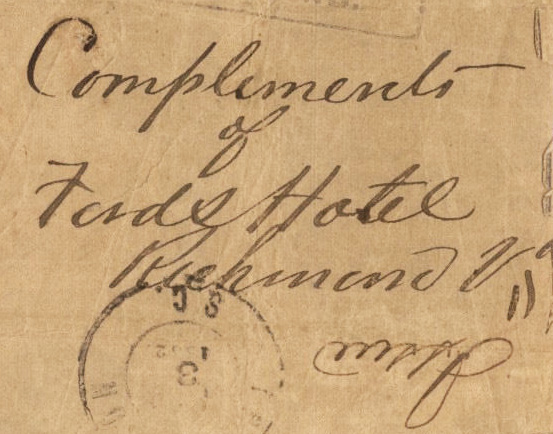 Compliments
of
Fords Hotel
Richmond Va
S.C.
3